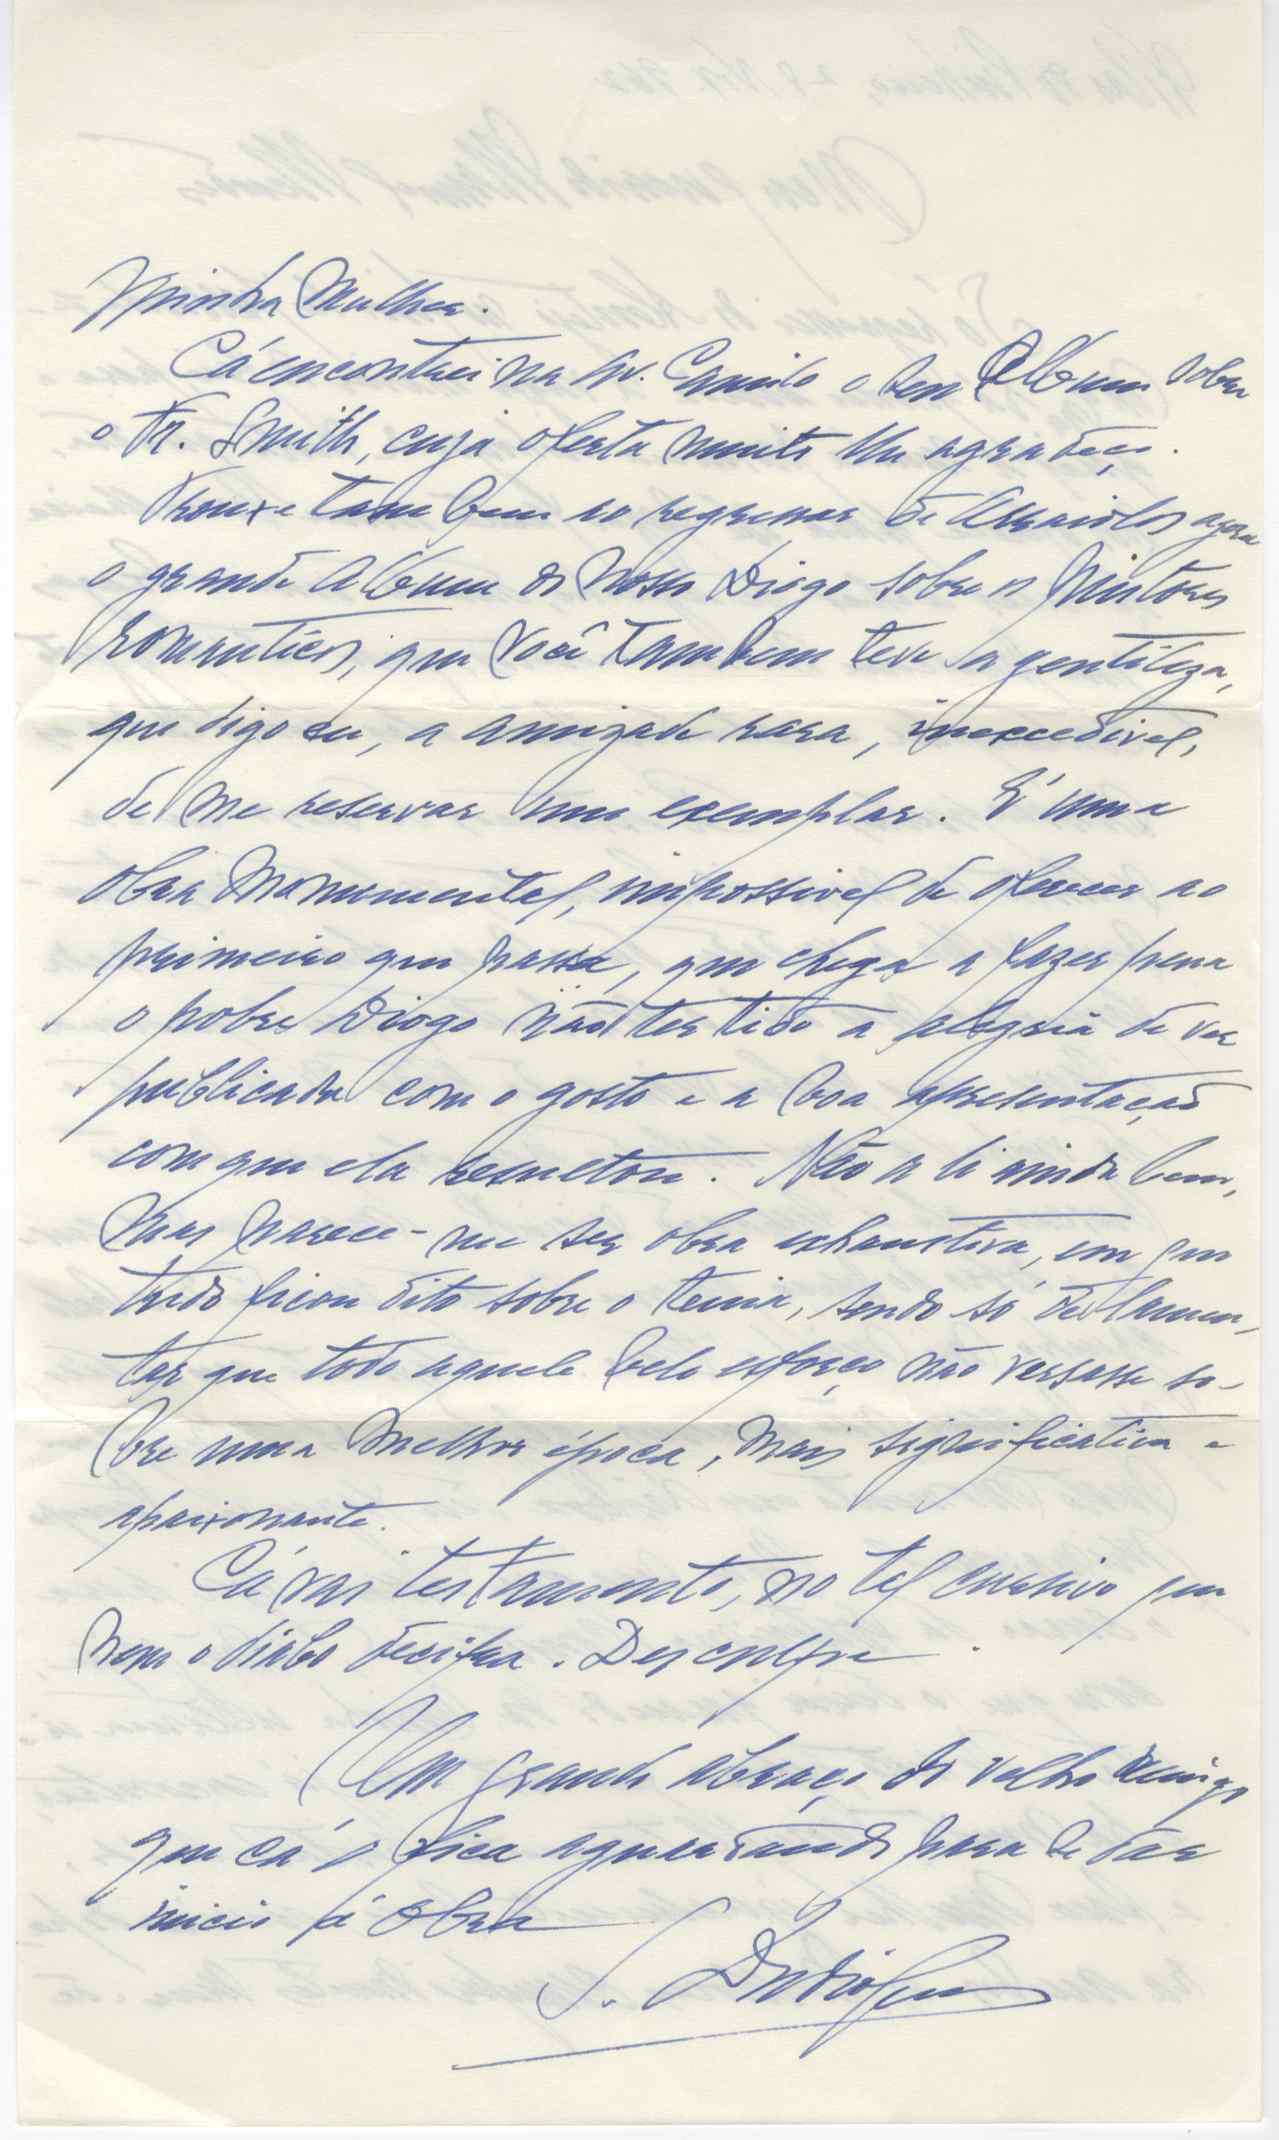 Minha Mulher.
Cá encontrei na Av. Camilo o seu Album sobre
o Fr. Smith, cuja oferta muito lhe agradeço.
Trouxe tambem ao regressar de Arraiolos agora
o grande Album do nosso Diogo sobre os Pintores
romanticos, que Você tambem teve a gentileza,
que digo eu, a amizade rara, inexcedivel,
de me reservar um exemplar. É uma
obra monumental, impossivel de oferecer ao
primeiro que passa, que chega a fazer pena
o pobre Diogo não ter tido a alegria de ver
publicada com o gosto e a boa apresentação
com que ela resultou. Não a li ainda bem,
mas parece-me ser obra exhaustiva, em que
tudo ficou dito sobre o tema, sendo só de lamen-
tar que todo aquele belo esforço não versasse so-
bre uma melhor época, mais significativa e
apaixonante.
Cá vai testamento, no tal cursivo que
nem o diabo decifra. Desculpe
Um grande abraço do velho amigo
que cá o fica aguardando para se dar
inicio á obra